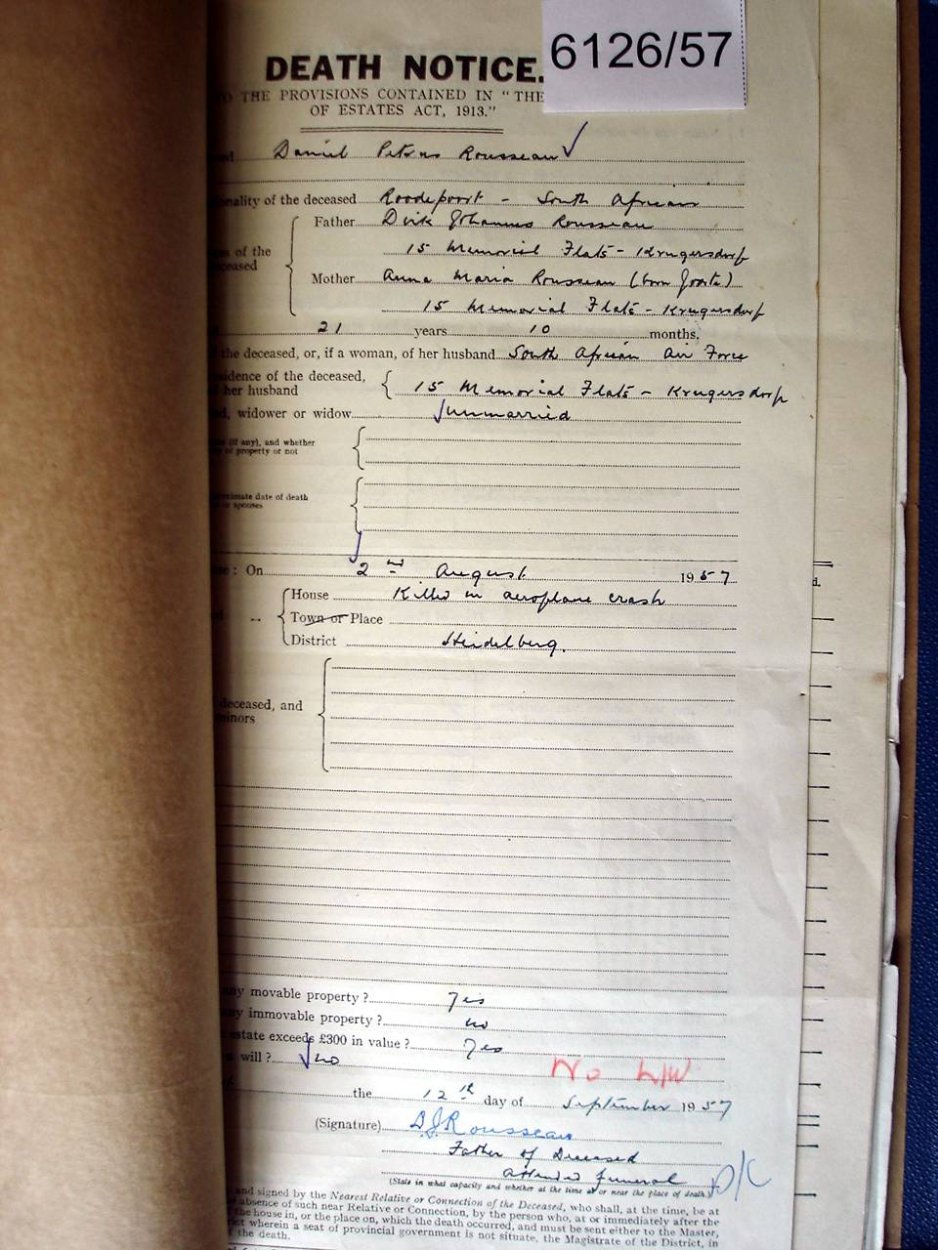 6126/57
DEATH NOTICE.
TO THE PROVISIONS CONTAINED IN "THE
OF ESTATES ACT, 1913."
Daniel Petrus Rousseau
nality of the deceased Roodepoort - South African
Father Dirk Johannes Rousseau
15 Memorial Flats - Krugersdorp
es of the
ceased
Mother Anna Maria Rousseau (born Jooste)
15 Memorial Flats - Krugersdorp
21 years 10 months.
the deceased, or, if a woman, of her husband South African Air Force
sidence of the deceased,
her husband 15 Memorial Flats - Krugersdorp
ed, widower or widow unmarried
(if any), and whether
of property or not
ximate date of death
or spouses
: On 2nd August 1957
House Killed in aeroplane crash
Town or Place
District Heidelberg.
deceased, and
minors
any movable property? Yes
any immovable property? no
estate exceeds £300 in value? Yes
a will? no
No L/W
the 12th day of September 1957
(Signature) D.J Rousseau
Father of Deceased
attended funeral
(State in what capacity and whether at the time at or near the place of death.)
and signed by the Nearest Relative or Connection of the Deceased, who shall, at the time, be at
absence of such near Relative or Connection, by the person who, at or immediately after the
the house in, or the place on, which the death occurred, and must be sent either to the Master,
ct wherein a seat of provincial government is not situate, the Magistrate of the District, in
f the death.